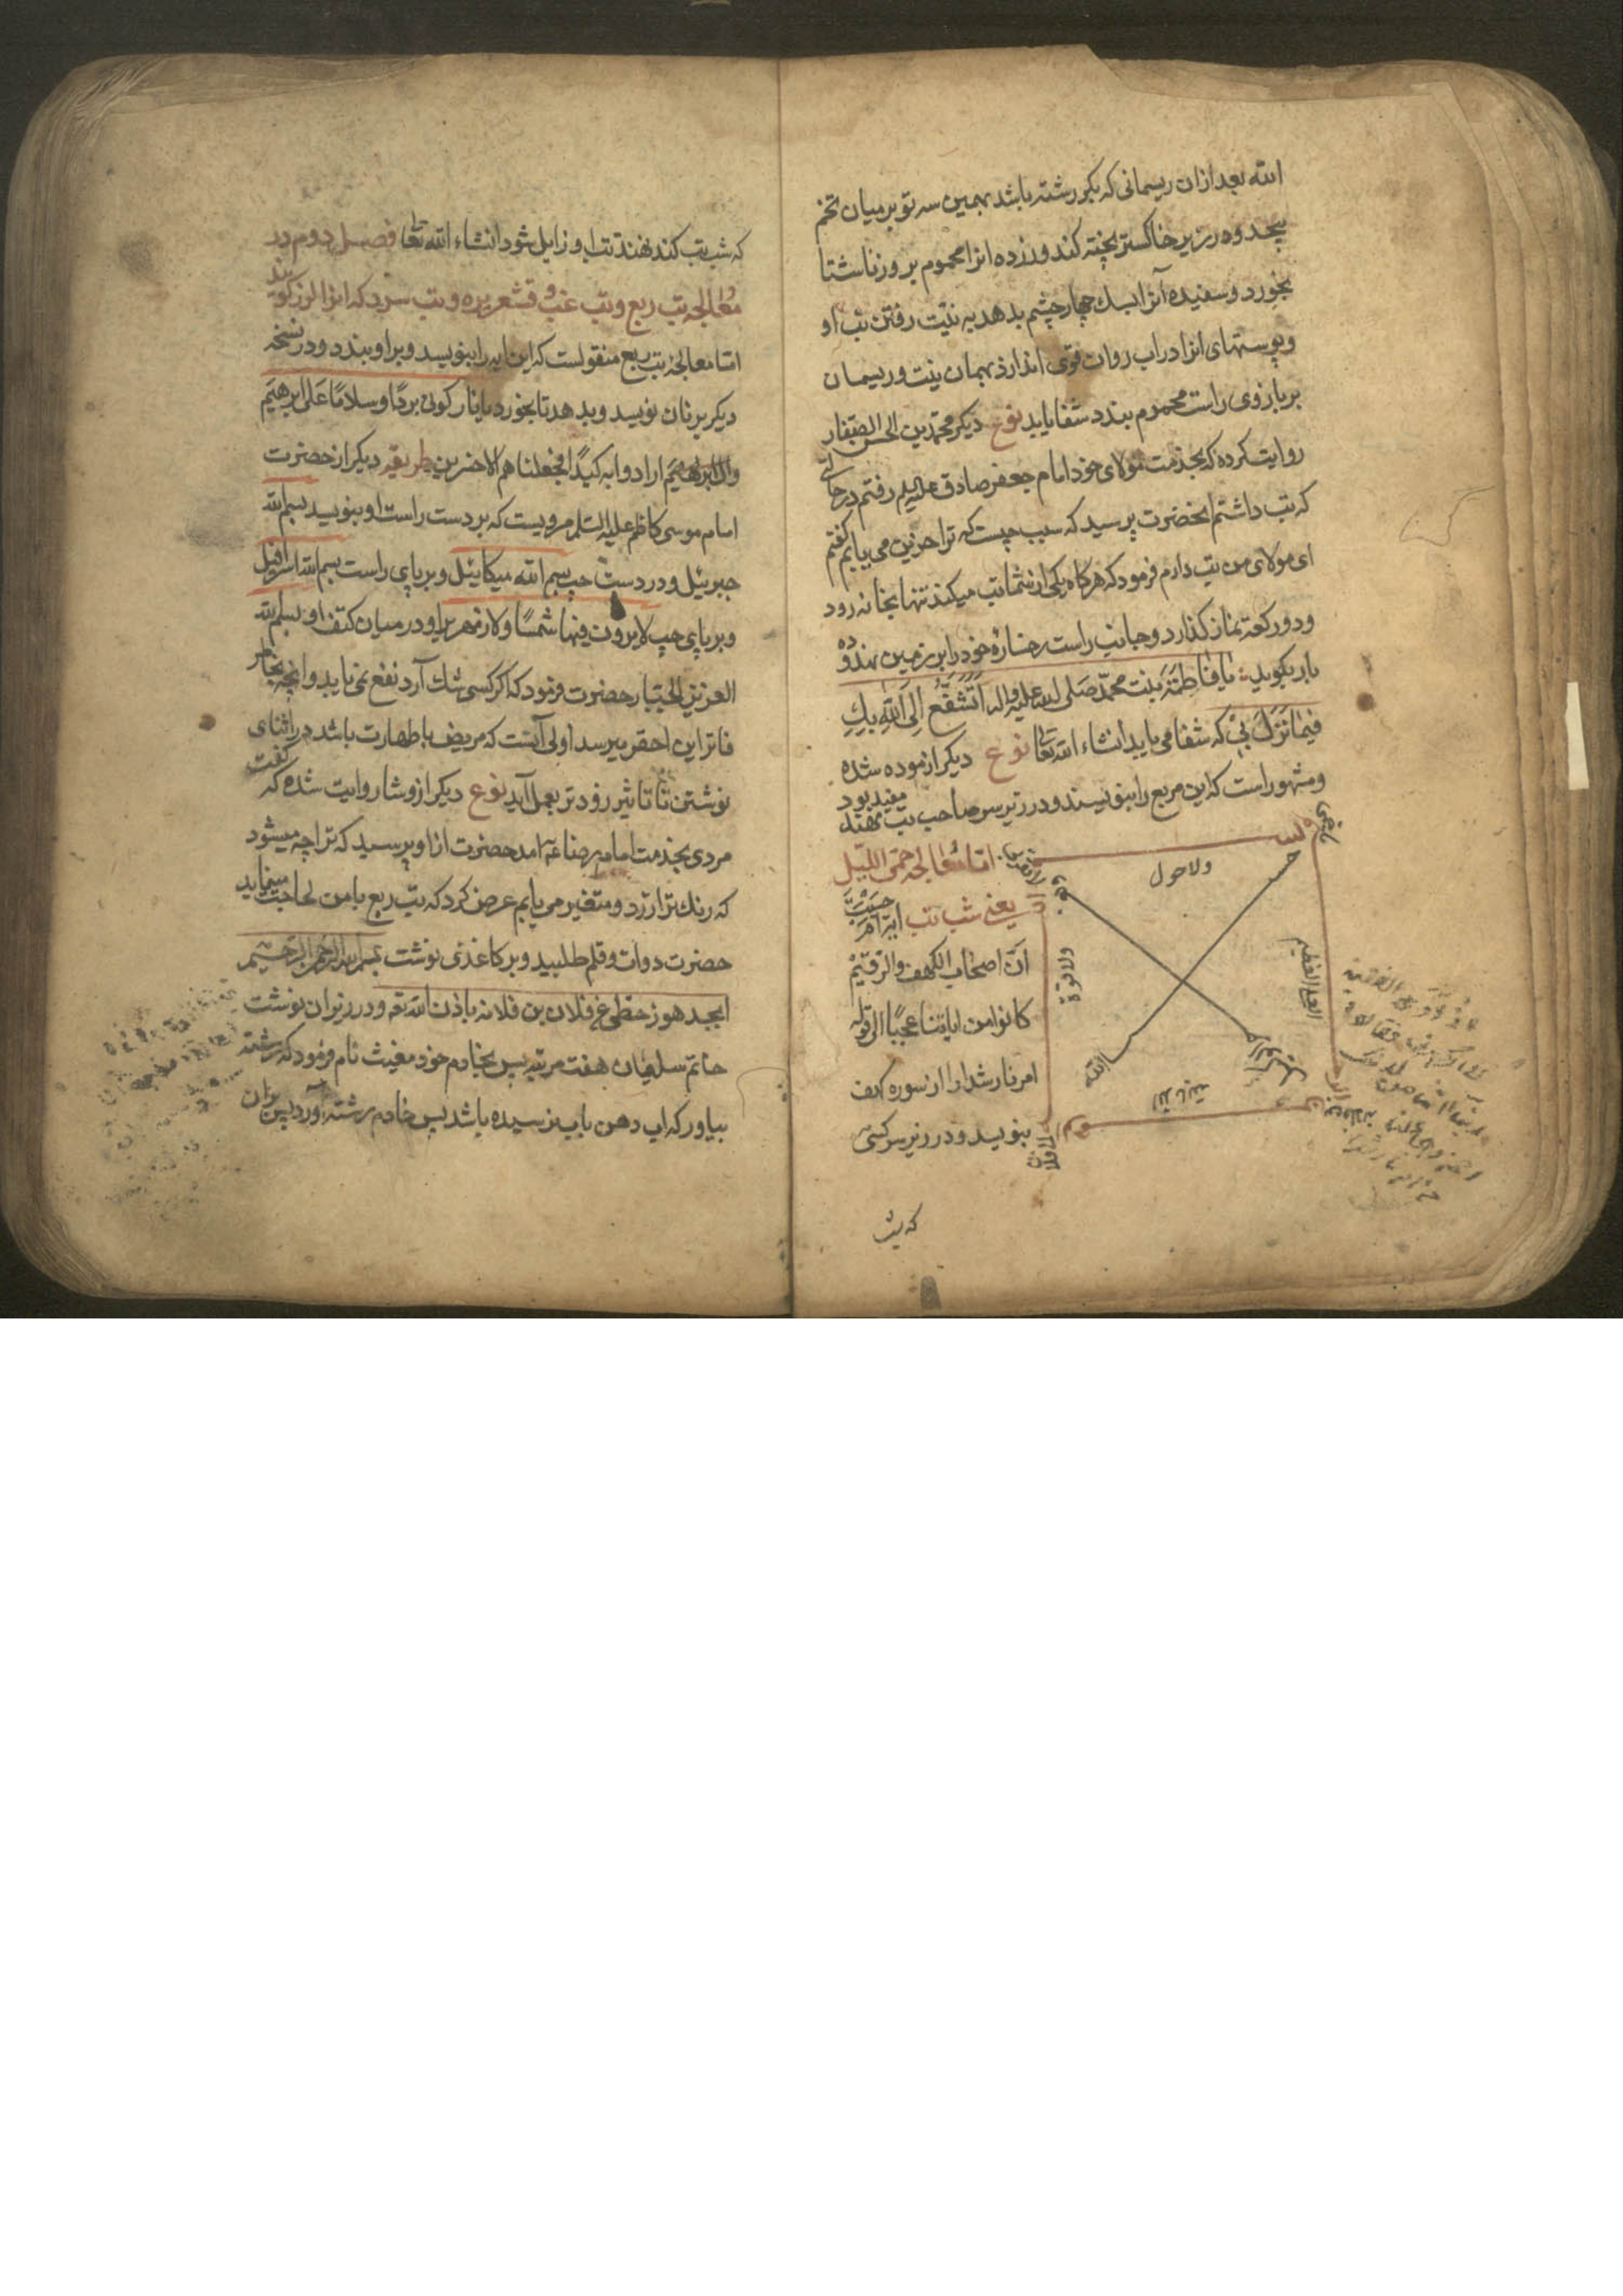 الله بعد از ان ریسمانی که بکر رشته باشد بهمین سه تو بر میان تخم
پیچد و در زیر خاکستر پخته کند و زرده انرا محموم بروز ناشتا
بخورد و سفیده آنرا بسک چهار چشم بدهد به نیت رفتن تب او
و پوستهای انرا در اب روان قوی اندازد بهمان نیت و ریسمان
بر بازوی راست محموم بندد شفا یابد نوع دیکر محمد بن الحسن الصفار
روایت کرده که بخدمت مولای خود امام جعفر صادق علیه السلم رفتم در حالتی
که تب داشتم انحضرت پرسید که سبب چیست که ترا حزین می یابم کفتم
ای مولای من تب دارم فرمود که هرکاه یکی از شما تب میکند تنها بخانه رود
و دو رکعة نماز کذارد و جانب راست رخساره خود را بر زمین نهد و ده
بار بکوید یا فاطمة بنت محمد صلی الله علیه واله اتشفع الی الله بك
فیما نزل بی که شفا می یابد انشاء الله تعا نوع دیکر ازموده شده
و مشهور است که این مربع را بنویسند و در زیر سر صاحب تب نهند مفید بود
اما معالجه حمی اللیل
یعنی شب تب ایه ام حسبت
ان اصحاب الکهف والرقیم
کانوا من ایاتنا عجبا الی قوله
امرنا رشدا را از سوره کهف
بنویسد و در زیر سر کسی
ولا حول
ولا قوة
العلی العظیم
الا بالله
که شب
که شب تب کند نهند تب او زایل شود انشاء الله تعا فصل دوم در
معالجه تب ربع و تب غب و قشعریره و تب سرد که انرا لرز کویند
اما معالجۀ تب ربع منقولست که این ایه را بنویسد و بر او بندد و در نسخه
دیکر بر نان نویسد و بدهد تا بخورد یا نار کونی بردا وسلاما علی ابرهیم
وارادوا به کیدا فجعلناهم الاخسرین طریقه دیکر از حضرت
امام موسی کاظم علیه السلم مرویست که بر دست راست او بنویسد بسم الله
جبرئیل و در دست چپ بسم الله میکائیل و بر پای راست بسم الله اسرافیل
و بر پای چپ لا یرون فیها شمسا ولا زمهریرا و در میان کتف او بسم الله
العزیز الجبار حضرت فرمود که اکر کسی شك آرد نفع نمی یابد و انچه بخاطر
فاتر این احقر میرسد اولی آنست که مریض با طهارت باشد در اثنای
نوشتن تا تاثیر زودتر بعمل آید نوع دیکر از وشا روایت شده که کفت
مردی بخدمت امام رضا عه امد حضرت از او پرسید که ترا چه میشود
که رنك ترا زرد و متغیر می یابم عرض کرد که تب ربع با من لجاجت مینماید
حضرت دوات و قلم طلبید و بر کاغذی نوشت بسم الله الرحمن الرحیم
ابجد هوز حطی ع فلان بن فلانه باذن الله تعه و در زیر ان نوشت
خاتم سلیمان هفت مرتبه پس بخادم خود مغیث نام فرمود که رشته
بیاور که اب دهن باب نرسیده باشد پس خادم رشته آورد پس بران